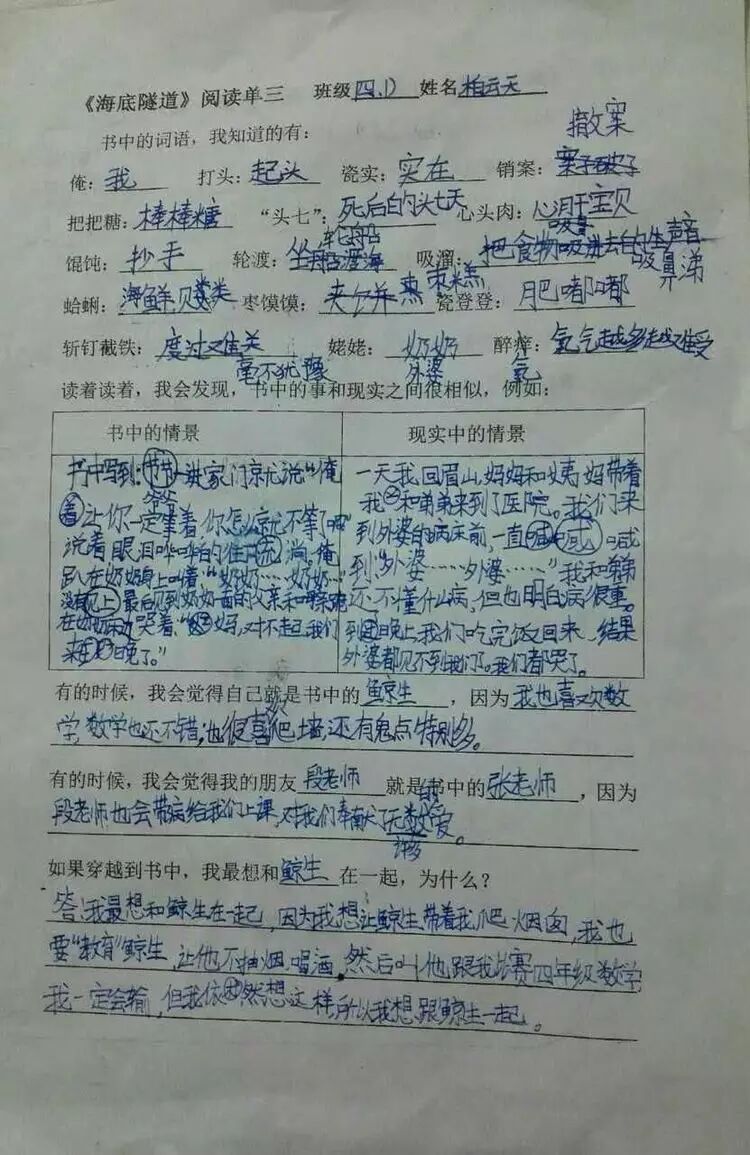 《海底隧道》阅读单三 班级四.1) 姓名柏云天
书中的词语，我知道的有：
撤案
俺：我 打头：起头 瓷实：实在 销案：
把把糖：棒棒糖 “头七”：死后的头七天 心头肉：心肝宝贝
馄饨：抄手 轮渡：坐船渡海 吸溜：把食物吸进去的声音
轮船 吸鼻涕
蛤蜊：海鲜贝类 枣馍馍： 枣糕 瓷登登：肥嘟嘟
斩钉截铁：度过难关 姥姥：奶奶 醉痒：氧气越多越难受
毫不犹豫 外婆 氧
读着读着，我会发现，书中的事和现实之间很相似，例如：
书中的情景 现实中的情景
书中写到：爷爷一进家门就说“俺
让你一定等着你怎么就不等了呢”
说着，眼泪啪啪的往下淌。俺
趴在奶奶身上叫着：“奶奶……奶奶……”
没有见上最后见到奶奶一面的父亲和
哭着：“妈，对不起，我们
来晚了。”
一天我回眉山，妈妈和姨妈带着
我和弟弟来到了医院。我们来
到外婆的病床前，一直喊
到“外婆……外婆……”我和弟弟
还不懂什么病，但也明白病很重。
到晚上，我们吃完饭回来，结果
外婆都见不到我们了。我们都哭了。
有的时候，我会觉得自己就是书中的 鲸生 ，因为我也喜欢数
学，数学也还不错，也很喜欢爬墙，还有鬼点特别多。
有的时候，我会觉得我的朋友 段老师 就是书中的张老师 ，因为
段老师也会带病给我们上课，对我们奉献了无数的爱。
如果穿越到书中，我最想和鲸生在一起，为什么？
答：我最想和鲸生在一起，因为我想让鲸生带着我爬烟囱，我也
要“教育”鲸生，让他不抽烟、喝酒，然后叫他跟我比赛四年级数学
我一定会输，但我依然想这样，所以我想跟鲸生一起。